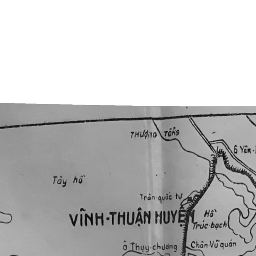 THƯỢNG TỔNG
Tây hồ
Trấn quốc tự
VĨNH-THUẬN HUYỆN
Hồ
Trúc-bạch
Thụy-chương
Chân Vũ quán